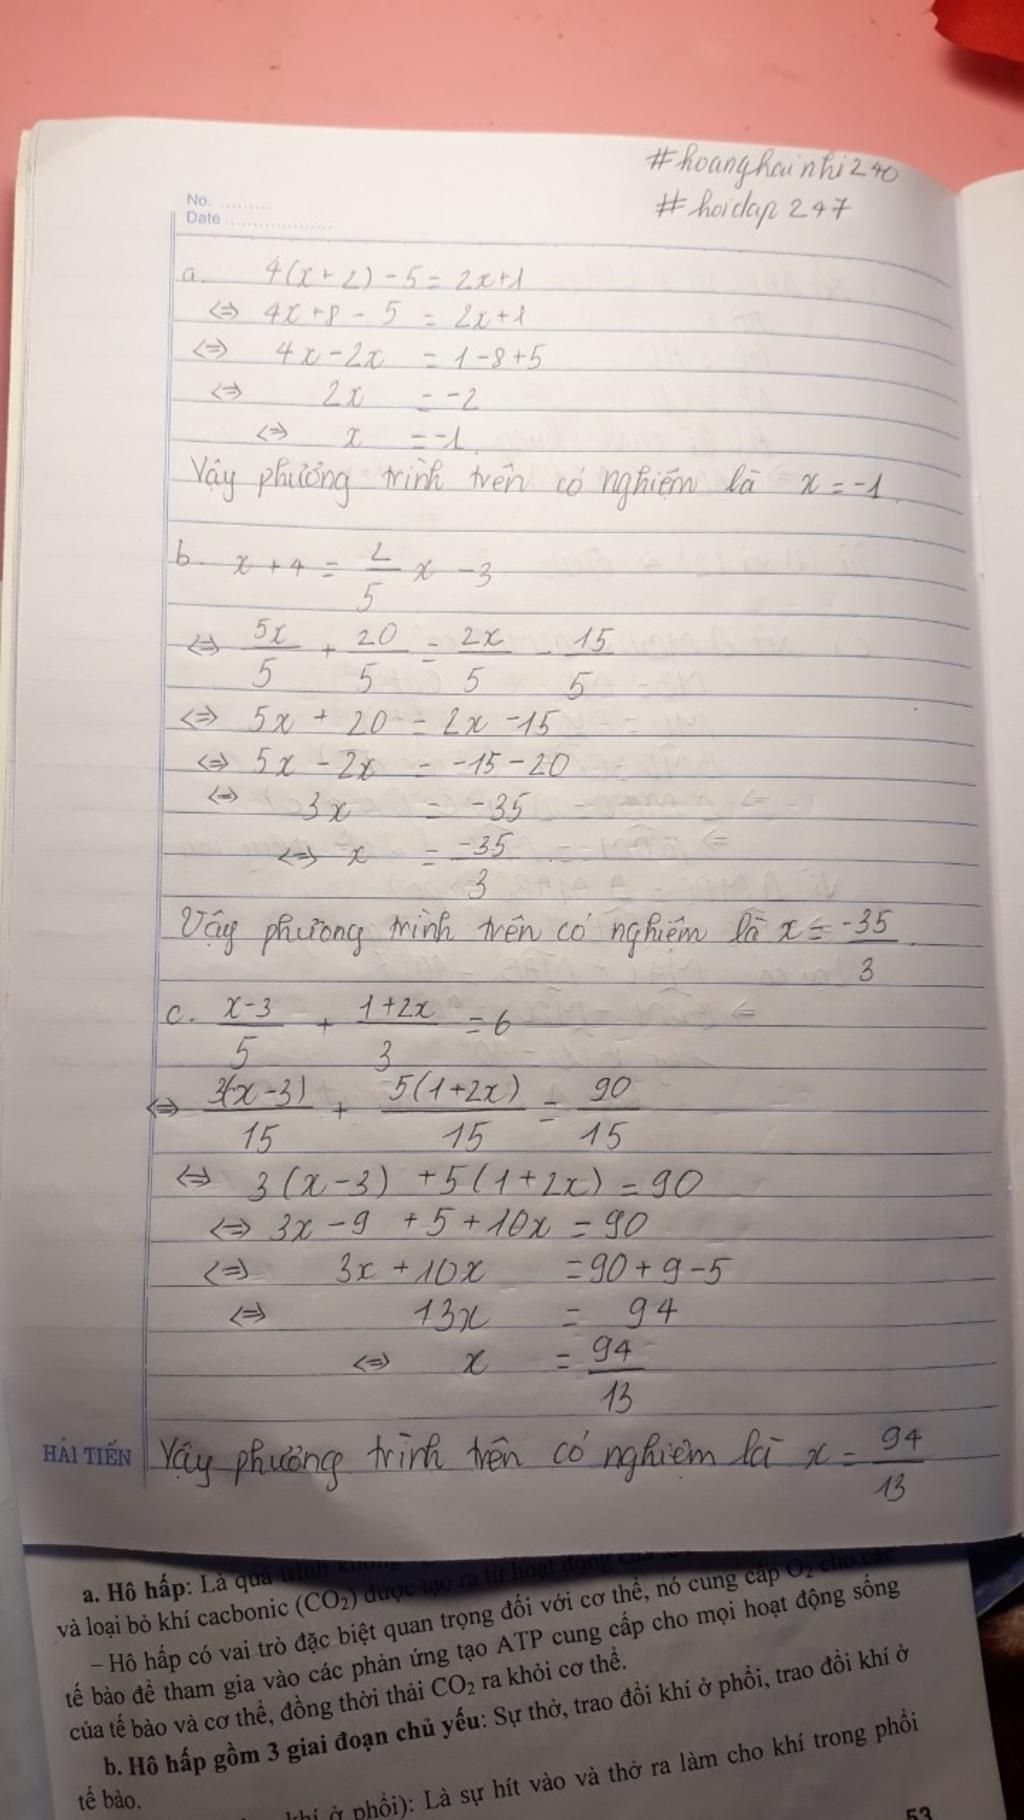 #hoanghainhi240
#hoidap247
No. .........
Date ....................
a. 4(x+2)-5=2x+1
<=> 4x+8-5 = 2x+1
<=> 4x-2x = 1-8+5
<=> 2x = -2
<=> x = -1
Vậy phương trình trên có nghiệm là x=-1.
b. x+4 = 2/5 x -3
<=> 5x/5 + 20/5 = 2x/5 - 15/5
<=> 5x + 20 = 2x -15
<=> 5x - 2x = -15-20
<=> 3x = -35
<=> x = -35/3
Vậy phương trình trên có nghiệm là x = -35/3
c. x-3/5 + 1+2x/3 = 6
<=> 3(x-3)/15 + 5(1+2x)/15 = 90/15
<=> 3(x-3) +5(1+2x) = 90
<=> 3x-9 +5+10x = 90
<=> 3x+10x =90+9-5
<=> 13x = 94
<=> x = 94/13
HẢI TIẾN
Vậy phương trình trên có nghiệm là x = 94/13
a. Hô hấp: Là quá trình
và loại bỏ khí cacbonic (CO2) được tạo ra từ hoạt động của
– Hô hấp có vai trò đặc biệt quan trọng đối với cơ thể, nó cung cấp O2 cho các
tế bào để tham gia vào các phản ứng tạo ATP cung cấp cho mọi hoạt động sống
của tế bào và cơ thể, đồng thời thải CO2 ra khỏi cơ thể.
b. Hô hấp gồm 3 giai đoạn chủ yếu: Sự thở, trao đổi khí ở phổi, trao đổi khí ở
tế bào.
khí ở phổi): Là sự hít vào và thở ra làm cho khí trong phổi
53